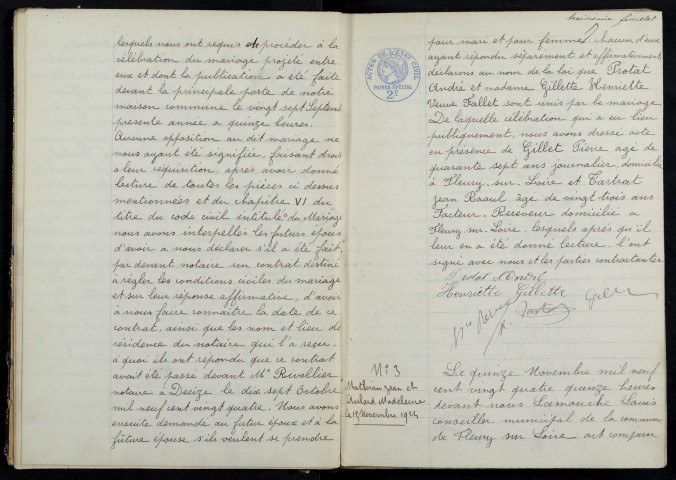 lesquels nous ont requis de procéder à la
célébration du mariage projeté entre
eux et dont la publication a été faite
devant la principale porte de notre
maison commune le vingt sept Septembre
présente année a quinze heures.
Aucune opposition au dit mariage ne
nous ayant été signifiée, faisant droit
a leur réquisition, après avoir donné
lecture de toutes les pièces ci dessus
mentionnées et du chapitre VI du
titre du code civil intitulé "du Mariage
nous avons interpellés les futurs époux
d'avoir a nous déclarer s'il a été fait
par devant notaire un contrat destiné
à régler les conditions civiles du mariage
et sur leur réponse affirmative, d'avoir
à nous faire connaître la date de ce
contrat, ainsi que les nom et lieu de
résidence du notaire qui l'a reçu,
à quoi ils ont répondu que ce contrat
avait été passé devant Me Rivollier
notaire a Decize le dix sept Octobre
mil neuf cent vingt quatre. Nous avons
ensuite demandé au futur époux et à la
future épouse s'ils veulent se prendre
feuillet
ACTES DE L'ETAT CIVIL
PAPIER SPECIAL
2F
pour mari et pour femme, chacun d'eux
ayant répondu séparément et affirmativement
déclarons au nom de la loi que Protat
André et madame Gillette Henriette
Veuve Fallet sont unis par le mariage
De laquelle célébration qui a eu lieu
publiquement, nous avons dressé acte
en présence de Gillet Pierre agé de
quarante sept ans journalier, domicilié
à Fleury-sur-Loire et Tartrat
Jean Raoul âge de vingt trois ans
Facteur-Receveur domicilié a
Fleury-sur-Loire. lesquels après qu'il
leur en a été donné lecture, l'ont
signé avec nous et les parties contractantes
Henriette Gillette
No 3
Jean et
Madeleine
Novembre 1924
Le quinze Novembre mil neuf
cent vingt quatre quinze heures
devant nous Lamanche Louis
conseiller municipal de la commune
de Fleury sur Loire ont comparu